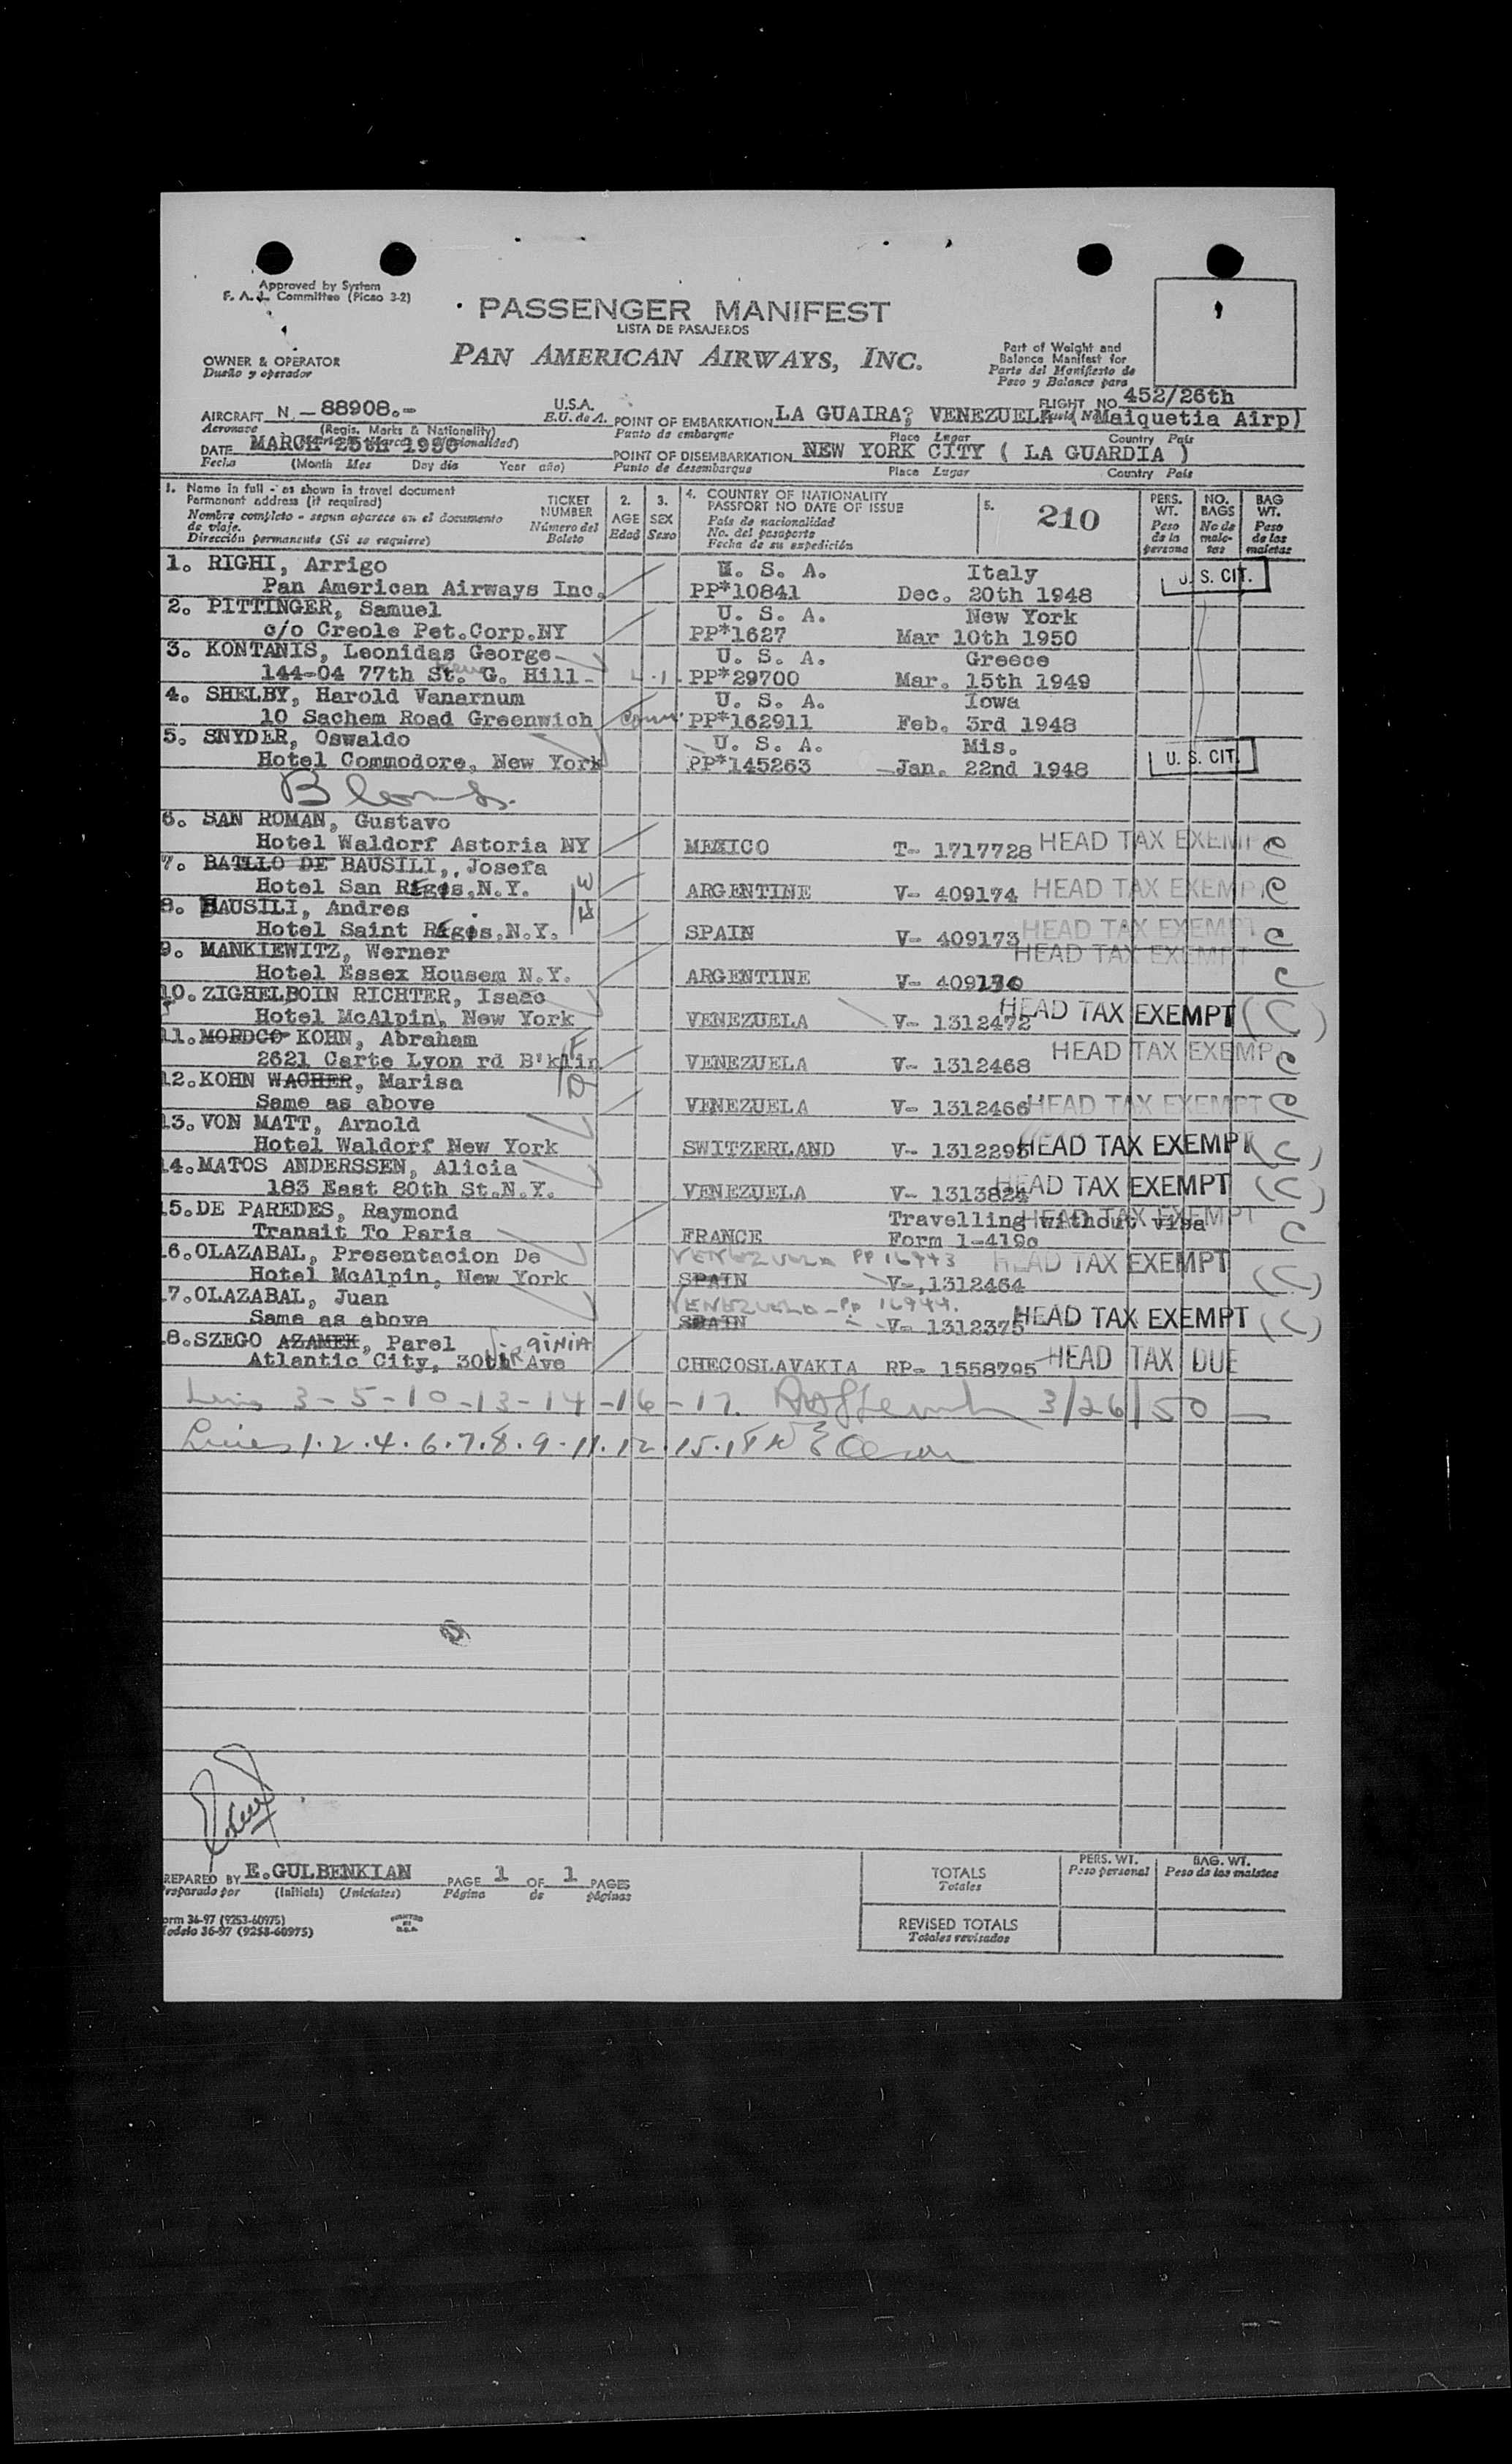 Approved by System
F. A. L. Committee (Picao 3-2)
PASSENGER MANIFEST
LISTA DE PASAJEROS
PAN AMERICAN AIRWAYS, INC.
OWNER & OPERATOR
Dueño y operador
Part of Weight and
Balance Manifest for
Parte del Manifiesto de
Peso y Balance para
FLIGHT NO 452/26th
AIRCRAFT N - 88908.- U.S.A.
Aeronave (Regis. Marks & Nationality) E.U. de A.
POINT OF EMBARKATION LA GUAIRA, VENEZUELA (Maiquetia Airp)
Punto de embarque Place Lugar Country País
DATE MARCH 25th 1950
Fecha (Month Mes Day día Year año)
POINT OF DISEMBARKATION NEW YORK CITY ( LA GUARDIA )
Punto de desembarque Place Lugar Country País
1. Name in full - as shown in travel document
Permanent address (if required)
Nombre completo - segun aparece en el documento
de viaje.
Dirección permanente (Si se requiere)
TICKET NUMBER
Número del Boleto
2. AGE Edad
3. SEX Sexo
4. COUNTRY OF NATIONALITY
PASSPORT NO DATE OF ISSUE
País de nacionalidad
No. del pasaporte
Fecha de su expedición
5. 210
PERS. WT. Peso de la persona
NO. BAGS No de maletas
BAG WT. Peso de las maletas
1. RIGHI, Arrigo U. S. A. Italy
Pan American Airways Inc. PP*10841 Dec. 20th 1948 U. S. CIT.
2. PITTINGER, Samuel U. S. A. New York
c/o Creole Pet.Corp.NY PP*1627 Mar 10th 1950
3. KONTANIS, Leonidas George U. S. A. Greece
144-04 77th St. G. Hill L.I. PP*29700 Mar. 15th 1949
4. SHELBY, Harold Vanarnum U. S. A. Iowa
10 Sachem Road Greenwich Conn. PP*162911 Feb. 3rd 1948
5. SNYDER, Oswaldo U. S. A. Mis.
Hotel Commodore, New York PP*145263 Jan. 22nd 1948 U. S. CIT.
6. SAN ROMAN, Gustavo
Hotel Waldorf Astoria NY MEXICO T- 1717728 HEAD TAX EXEMPT C
7. BATLLO DE BAUSILI,, Josefa
Hotel San Regis,N.Y. ARGENTINE V- 409174 HEAD TAX EXEMPT C
8. BAUSILI, Andres
Hotel Saint Regis,N.Y. SPAIN V- 409173 HEAD TAX EXEMPT C
9. MANKIEWITZ, Werner HEAD TAX EXEMPT
Hotel Essex Housem N.Y. ARGENTINE V- 409130 C
10. ZIGHELBOIN RICHTER, Isaac
Hotel McAlpin, New York VENEZUELA V- 1312472 HEAD TAX EXEMPT (C)
11. MORDCO KOHN, Abraham
2621 Carte Lyon rd B'klin VENEZUELA V- 1312468 HEAD TAX EXEMPT C
12. KOHN WACHER, Marisa
Same as above VENEZUELA V- 1312466 HEAD TAX EXEMPT C
13. VON MATT, Arnold
Hotel Waldorf New York SWITZERLAND V- 1312295 HEAD TAX EXEMPT (C)
14. MATOS ANDERSSEN, Alicia
183 East 80th St.N.Y. VENEZUELA V- 1313824 HEAD TAX EXEMPT (C)
15. DE PAREDES, Raymond Travelling without visa HEAD TAX EXEMPT
Transit To Paris FRANCE Form 1-419c C
16. OLAZABAL, Presentacion De VENEZUELA PP 16943 HEAD TAX EXEMPT
Hotel McAlpin, New York SPAIN V-,1312464 (C)
17. OLAZABAL, Juan VENEZUELA-PP 16944.
Same as above SPAIN V- 1312375 HEAD TAX EXEMPT (C)
18. SZEGO AZAMEK, Parel VIRGINIA
Atlantic City, 30th Ave CHECOSLAVAKIA RP- 1558795 HEAD TAX DUE
Lines 3-5-10-13-14-16-17. 3/26/50
Lines 1.2.4.6.7.8.9.11.12.15.18
PREPARED BY E.GULBENKIAN PAGE 1 OF 1 PAGES
Preparado por (Initials) (Iniciales) Página de páginas
TOTALS
Totales
PERS. WT.
Peso personal
BAG. WT.
Peso de las maletas
REVISED TOTALS
Totales revisados
Form 36-97 (9253-60975)
Modelo 36-97 (9253-60975)
PRINTED IN U.S.A.